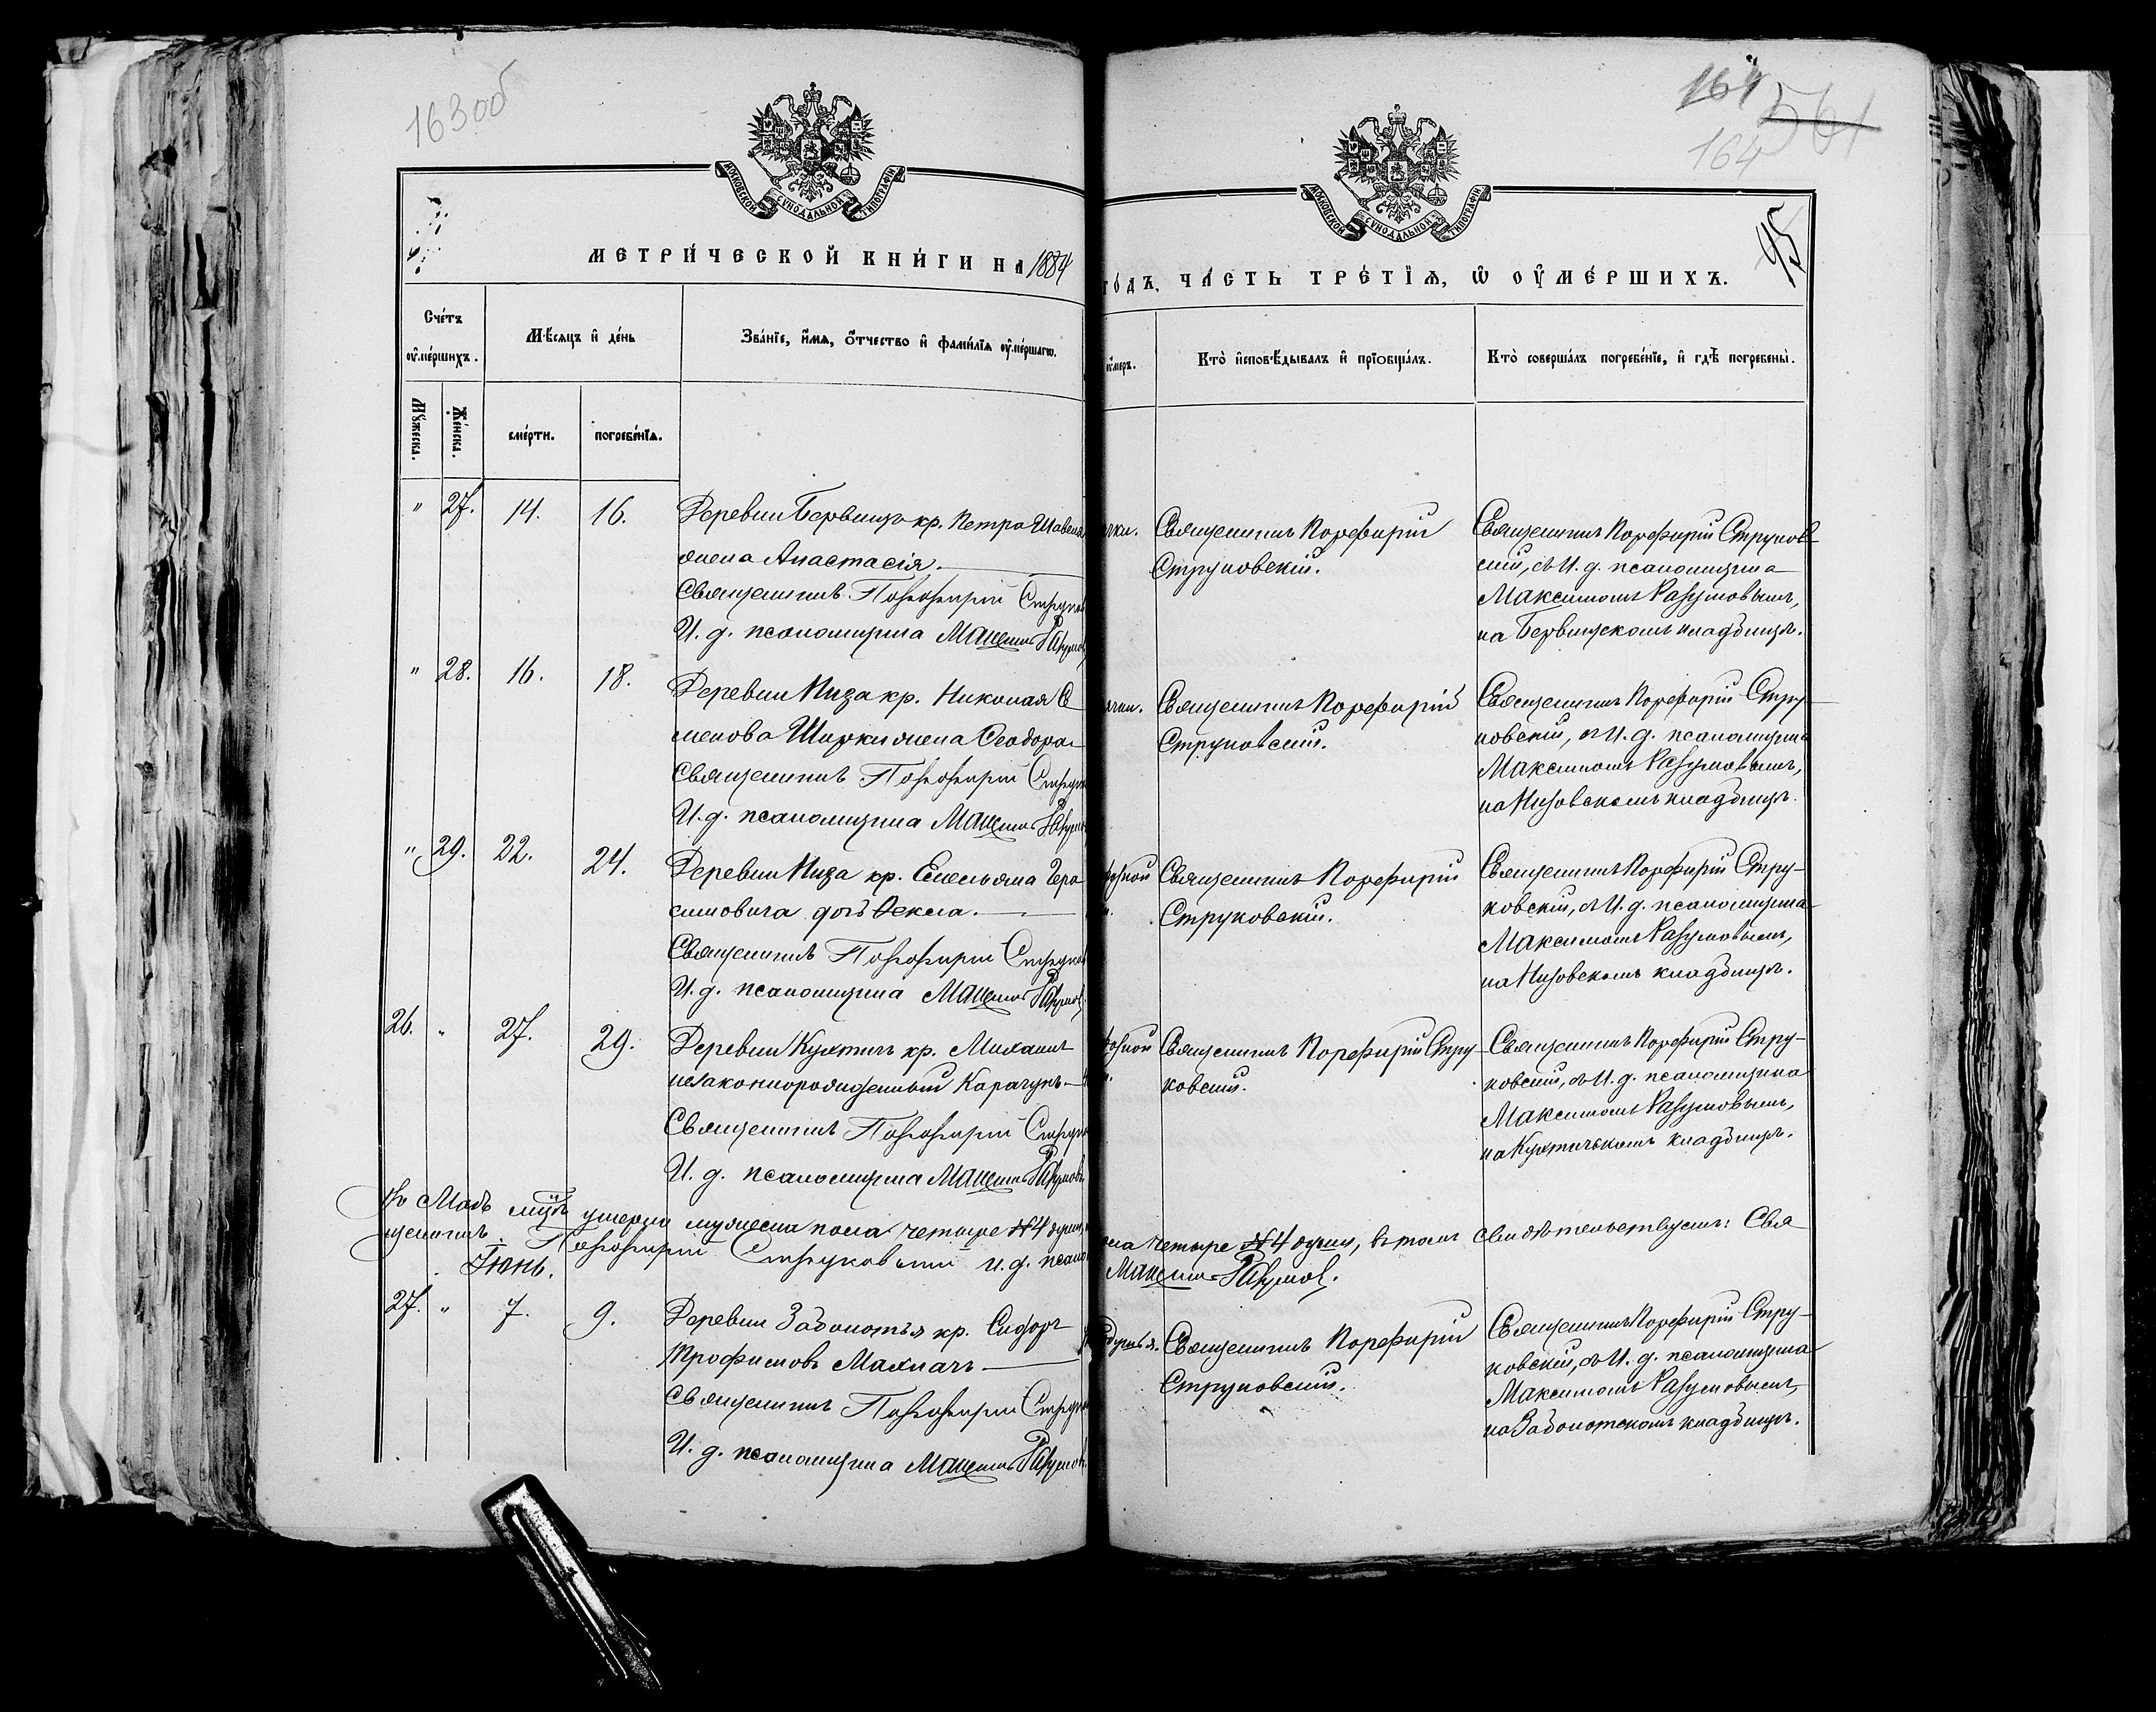 163 об
164
561
164
95
МОСКОВСКОЙ СѴНОДАЛЬНОЙ ТИПОГРАФІИ
МОСКОВСКОЙ СѴНОДАЛЬНОЙ ТИПОГРАФІИ
МЕТРИ́ЧЕСКОЙ КНИ́ГИ НА 1884
ГО́ДЪ, ЧА́СТЬ ТРЕ́ТІѦ, Ѡ ОУ҆МЕ́РШИХЪ.
Сче́тъ
оу҆ме́ршихъ.
Мѣ́сяцъ и҆ де́нь
Зва́нїе, и҆́мѧ, ѻ҆́тчество и҆ фами́лїѧ оу҆ме́ршагѡ.
оу҆́меръ.
Кто̀ и҆сповѣ́дывалъ и҆ прїѡбща́лъ.
Кто̀ соверша́лъ погребе́нїе, и҆ гдѣ̀ погребены̀.
Мꙋ́жеска.
Же́нска.
сме́рти.
погребе́нїѧ.
" 27. 14. 16. Деревни Бервищъ кр. Петра
жена Анастасія.
Священникъ Порфирій
И. д. псаломщика Максимъ
чки. Священникъ Порфирій
Струковскій.
Священникъ Порфирій Струков-
скій, съ И. д. псаломщика
Максимомъ Разумовымъ,
на Бервищскомъ кладбищѣ.
" 28. 16. 18. Деревни Низа кр. Николая Се
менова Шурки жена Ѳеодора
Священникъ Порфирій
И. д. псаломщика Максимъ
Священникъ Порфирій
Струковскій.
Священникъ Порфирій Стру-
ковскій, съ И. д. псаломщика
Максимомъ Разумовымъ,
на Низовскомъ кладбищѣ.
" 29. 22. 24. Деревни Низа кр. Емельяна Гера
симовича дочь Ѳекла.
Священникъ Порфирій
И. д. псаломщика Максимъ
Священникъ Порфирій
Струковскій.
Священникъ Порфирій Стру-
ковскій, съ И. д. псаломщика
Максимомъ Разумовымъ,
на Низовскомъ кладбищѣ.
26. " 27. 29. Деревни Кухтичъ кр. Михаилъ
незаконнорожденный Карачунъ
Священникъ Порфирій
И. д. псаломщика Максимъ Разумовъ
Священникъ Порфирій Стру-
ковскій.
Священникъ Порфирій Стру-
ковскій, съ И. д. псаломщика
Максимомъ Разумовымъ,
на Кухтичскомъ кладбищѣ.
умерли мужеска пола четыре №4 души,
пола четыре №4 души, въ томъ свидѣтельствуемъ: Свя
щенникъ Порфирій Струковскій И. д. псало
Максимъ Разумовъ.
Іюнь.
27. " 7. 9. Деревни Заболотья кр. Сидоръ
Трофимовъ Махначъ
Священникъ Порфирій
И. д. псаломщика Максимъ Разумовъ
Священникъ Порфирій
Струковскій.
Священникъ Порфирій Стру-
ковскій, съ И. д. псаломщика
Максимомъ Разумовымъ,
на Заболотскомъ кладбищѣ.